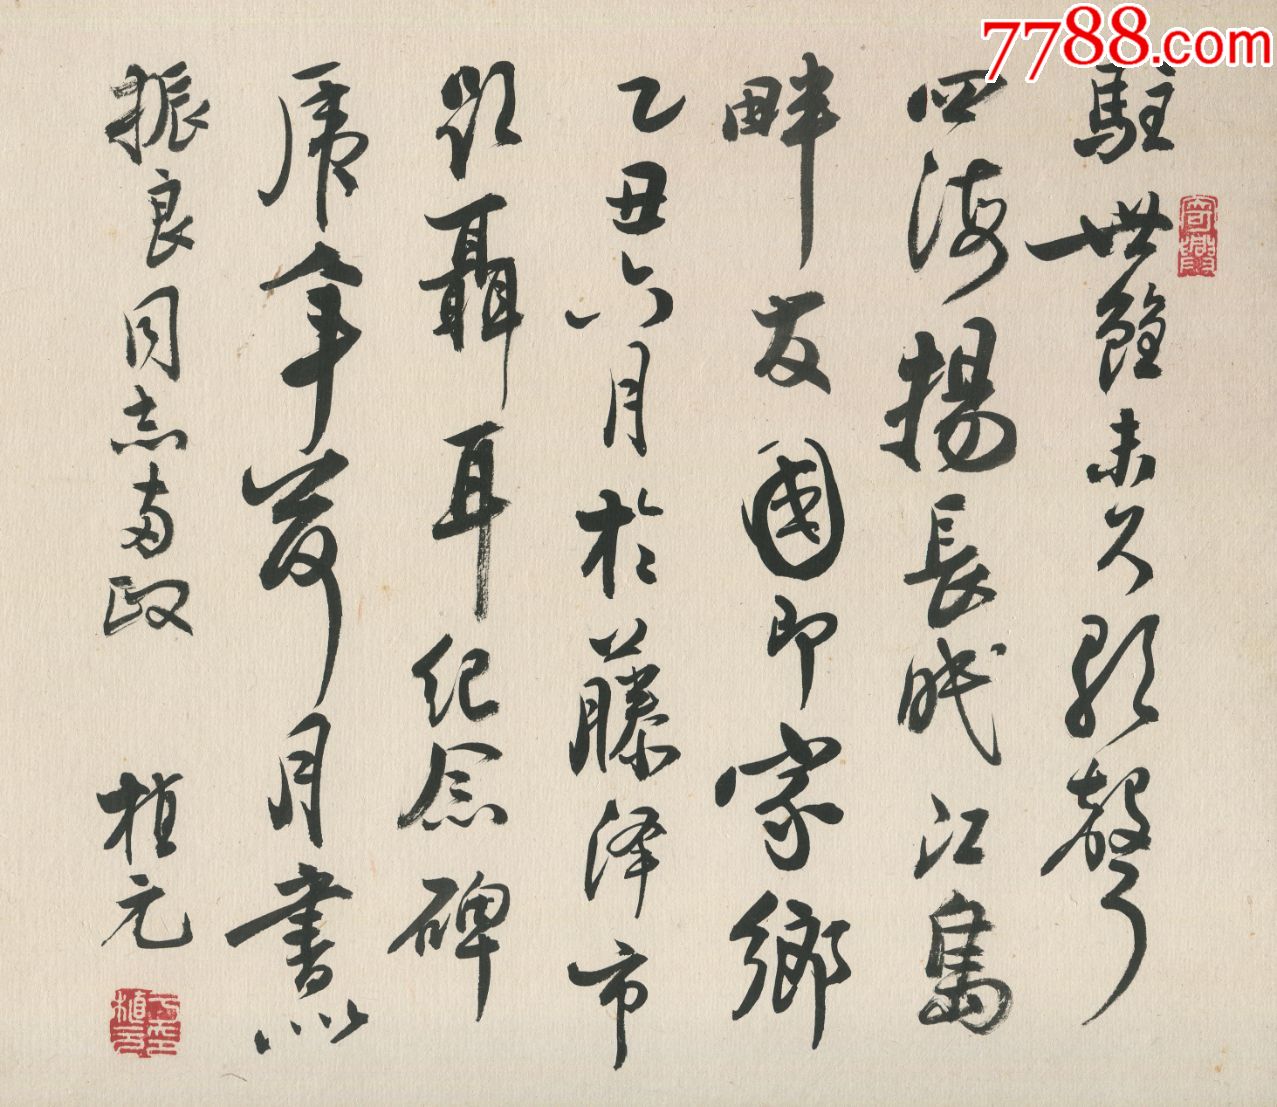 7788.com
駐世雖未久歌聲
四海揚長眠江島
畔友國即家鄉
乙丑六月於藤泽市
題聶耳纪念碑
虎年月書以
振良同志政 植元